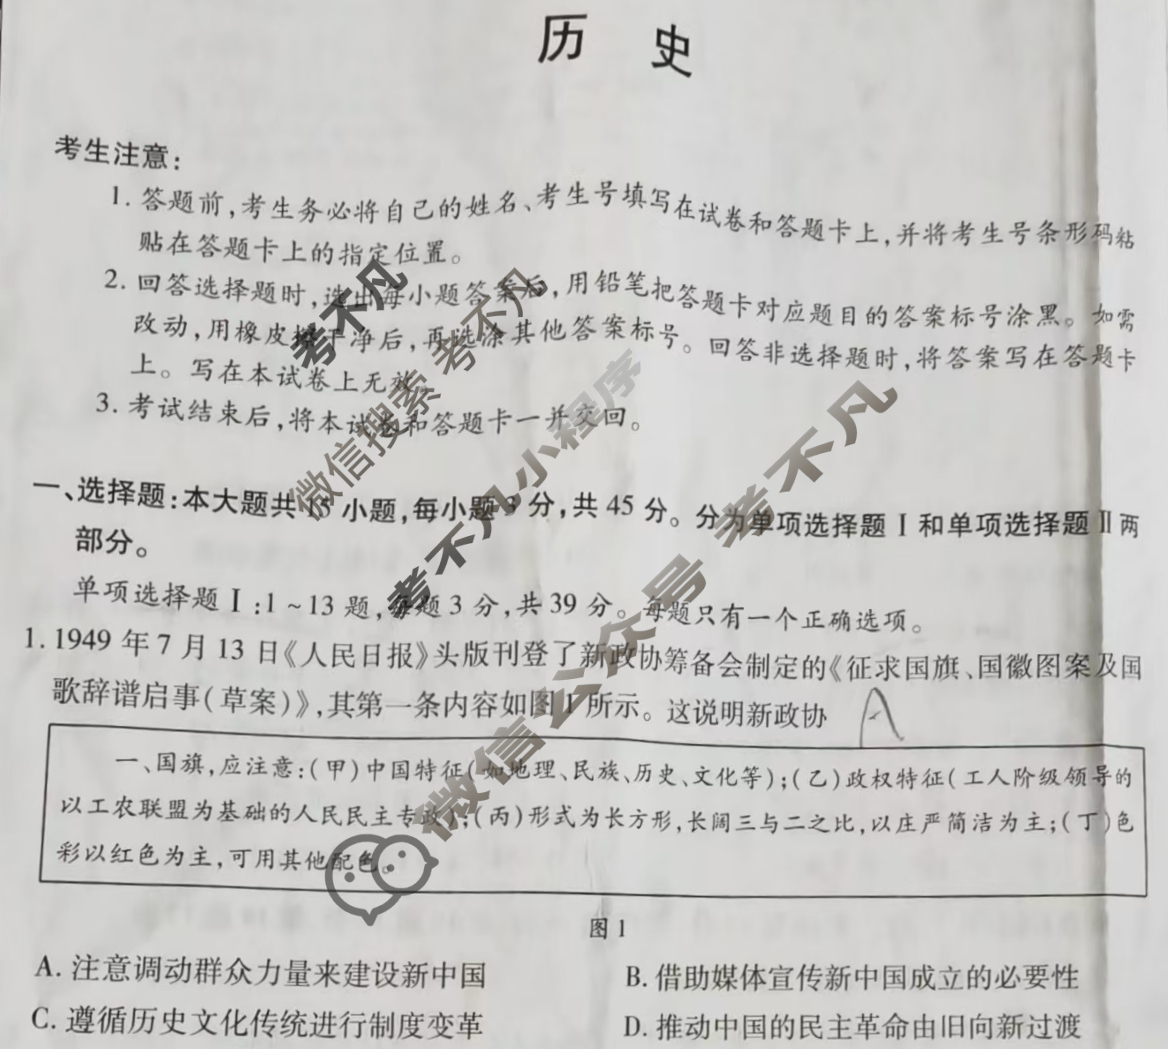 历 史
考生注意:
1. 答题前,考生务必将自己的姓名、考生号填写在试卷和答题卡上,并将考生号条形码粘
贴在答题卡上的指定位置。
2. 回答选择题时,选出每小题答案后,用铅笔把答题卡对应题目的答案标号涂黑。如需
改动,用橡皮擦干净后,再选涂其他答案标号。回答非选择题时,将答案写在答题卡
上。写在本试卷上无效。
3. 考试结束后,将本试卷和答题卡一并交回。
一、选择题:本大题共15小题,每小题3分,共45分。分为单项选择题Ⅰ和单项选择题Ⅱ两
部分。
单项选择题Ⅰ:1~13题,每题3分,共39分。每题只有一个正确选项。
1. 1949年7月13日《人民日报》头版刊登了新政协筹备会制定的《征求国旗、国徽图案及国
歌辞谱启事(草案)》,其第一条内容如图1所示。这说明新政协
A
一、国旗,应注意:(甲)中国特征(如地理、民族、历史、文化等);(乙)政权特征(工人阶级领导的
以工农联盟为基础的人民民主专政);(丙)形式为长方形,长阔三与二之比,以庄严简洁为主;(丁)色
彩以红色为主,可用其他配色。
图1
A. 注意调动群众力量来建设新中国
B. 借助媒体宣传新中国成立的必要性
C. 遵循历史文化传统进行制度变革
D. 推动中国的民主革命由旧向新过渡
考不凡
微信搜索 考不凡
考不凡小程序
微信公众号 考不凡